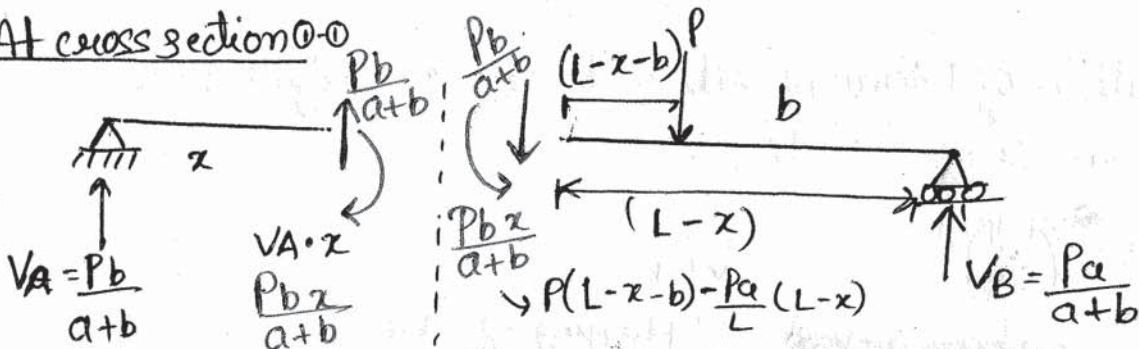 At cross section ①-①
Pb/(a+b)
x
VA = Pb/(a+b)
VA·x
Pbx/(a+b)
Pb/(a+b)
(L-x-b)
P
b
(L-x)
Pbx/(a+b)
P(L-x-b) - Pa/L (L-x)
VB = Pa/(a+b)